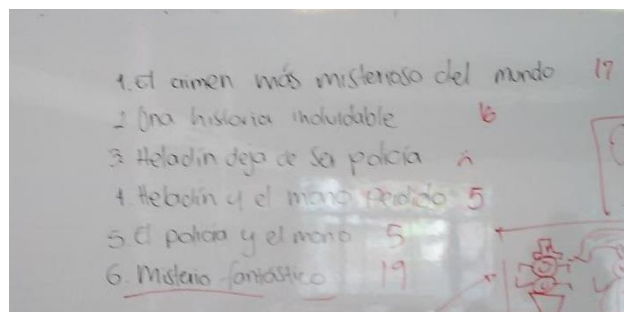 1. El crimen más misterioso del mundo 17
2 Una historia inolvidable 16
3. Heladin deja de ser policía
4. Heladín y el mono perdido 5
5. El policía y el mono 5
6. Misterio fantástico 19